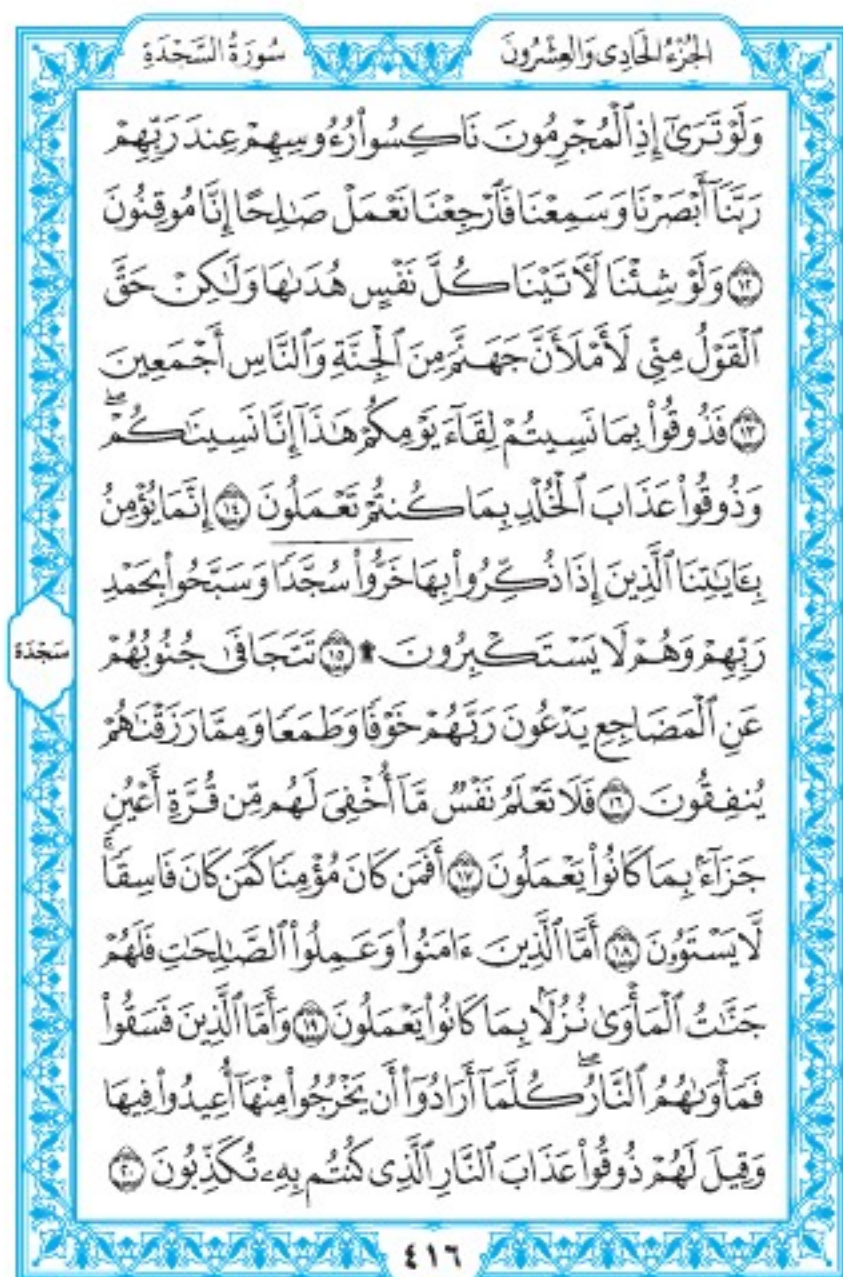 الجُزْءُ الحَادِي وَالعِشْرُونَ
سُورَةُ السَّجْدَةِ
وَلَوْ تَرَىٰٓ إِذِ ٱلْمُجْرِمُونَ نَاكِسُوا۟ رُءُوسِهِمْ عِندَ رَبِّهِمْ
رَبَّنَآ أَبْصَرْنَا وَسَمِعْنَا فَٱرْجِعْنَا نَعْمَلْ صَٰلِحًا إِنَّا مُوقِنُونَ
١٢ وَلَوْ شِئْنَا لَأٓتَيْنَا كُلَّ نَفْسٍ هُدَىٰهَا وَلَٰكِنْ حَقَّ
ٱلْقَوْلُ مِنِّى لَأَمْلَأَنَّ جَهَنَّمَ مِنَ ٱلْجِنَّةِ وَٱلنَّاسِ أَجْمَعِينَ
١٣ فَذُوقُوا۟ بِمَا نَسِيتُمْ لِقَآءَ يَوْمِكُمْ هَٰذَآ إِنَّا نَسِينَٰكُمْ ۖ
وَذُوقُوا۟ عَذَابَ ٱلْخُلْدِ بِمَا كُنتُمْ تَعْمَلُونَ ١٤ إِنَّمَا يُؤْمِنُ
بِـَٔايَٰتِنَا ٱلَّذِينَ إِذَا ذُكِّرُوا۟ بِهَا خَرُّوا۟ سُجَّدًا وَسَبَّحُوا۟ بِحَمْدِ
رَبِّهِمْ وَهُمْ لَا يَسْتَكْبِرُونَ ۩ ١٥ تَتَجَافَىٰ جُنُوبُهُمْ
سَجْدَة
عَنِ ٱلْمَضَاجِعِ يَدْعُونَ رَبَّهُمْ خَوْفًا وَطَمَعًا وَمِمَّا رَزَقْنَٰهُمْ
يُنفِقُونَ ١٦ فَلَا تَعْلَمُ نَفْسٌ مَّآ أُخْفِىَ لَهُم مِّن قُرَّةِ أَعْيُنٍ
جَزَآءًۢ بِمَا كَانُوا۟ يَعْمَلُونَ ١٧ أَفَمَن كَانَ مُؤْمِنًا كَمَن كَانَ فَاسِقًا ۚ
لَّا يَسْتَوُۥنَ ١٨ أَمَّا ٱلَّذِينَ ءَامَنُوا۟ وَعَمِلُوا۟ ٱلصَّٰلِحَٰتِ فَلَهُمْ
جَنَّٰتُ ٱلْمَأْوَىٰ نُزُلًۢا بِمَا كَانُوا۟ يَعْمَلُونَ ١٩ وَأَمَّا ٱلَّذِينَ فَسَقُوا۟
فَمَأْوَىٰهُمُ ٱلنَّارُ ۖ كُلَّمَآ أَرَادُوٓا۟ أَن يَخْرُجُوا۟ مِنْهَآ أُعِيدُوا۟ فِيهَا
وَقِيلَ لَهُمْ ذُوقُوا۟ عَذَابَ ٱلنَّارِ ٱلَّذِى كُنتُم بِهِۦ تُكَذِّبُونَ ٢٠
٤١٦